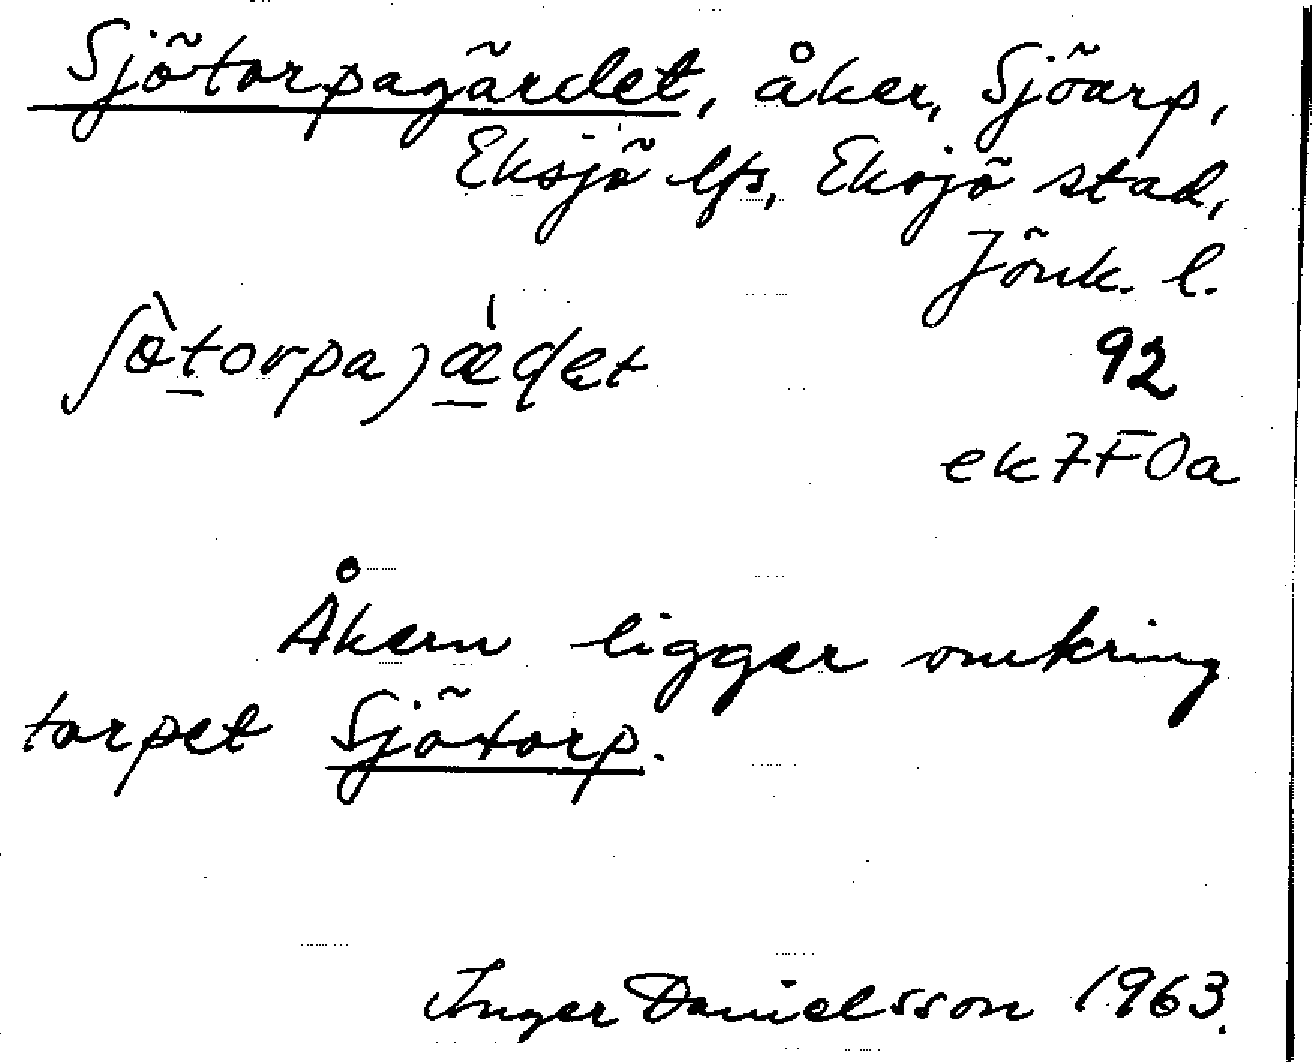 Sjötorpagärdet, åker, Sjöarp,
Eksjö lfs, Eksjö stad,
Jönk. l.
ʃø̀torpajǽɖet
92
ek 7F0a
Åkern ligger omkring
torpet Sjötorp.
Inger Danielsson 1963.